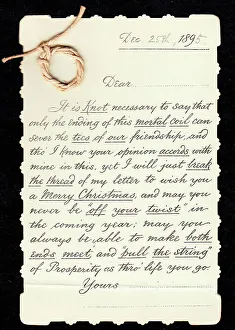 Dec 25th, 1895
Dear
It is Knot necessary to say that
only the ending of this mortal coil can
sever the ties of our friendship, and
tho I know your opinion accords with
mine in this, yet I will just break
the thread of my letter to wish you
a Merry Christmas, and may you
never be "off your twist" in
the coming year; may you
always be able to make both
ends meet, and "pull the string"
of Prosperity as thro' life you go.
Yours